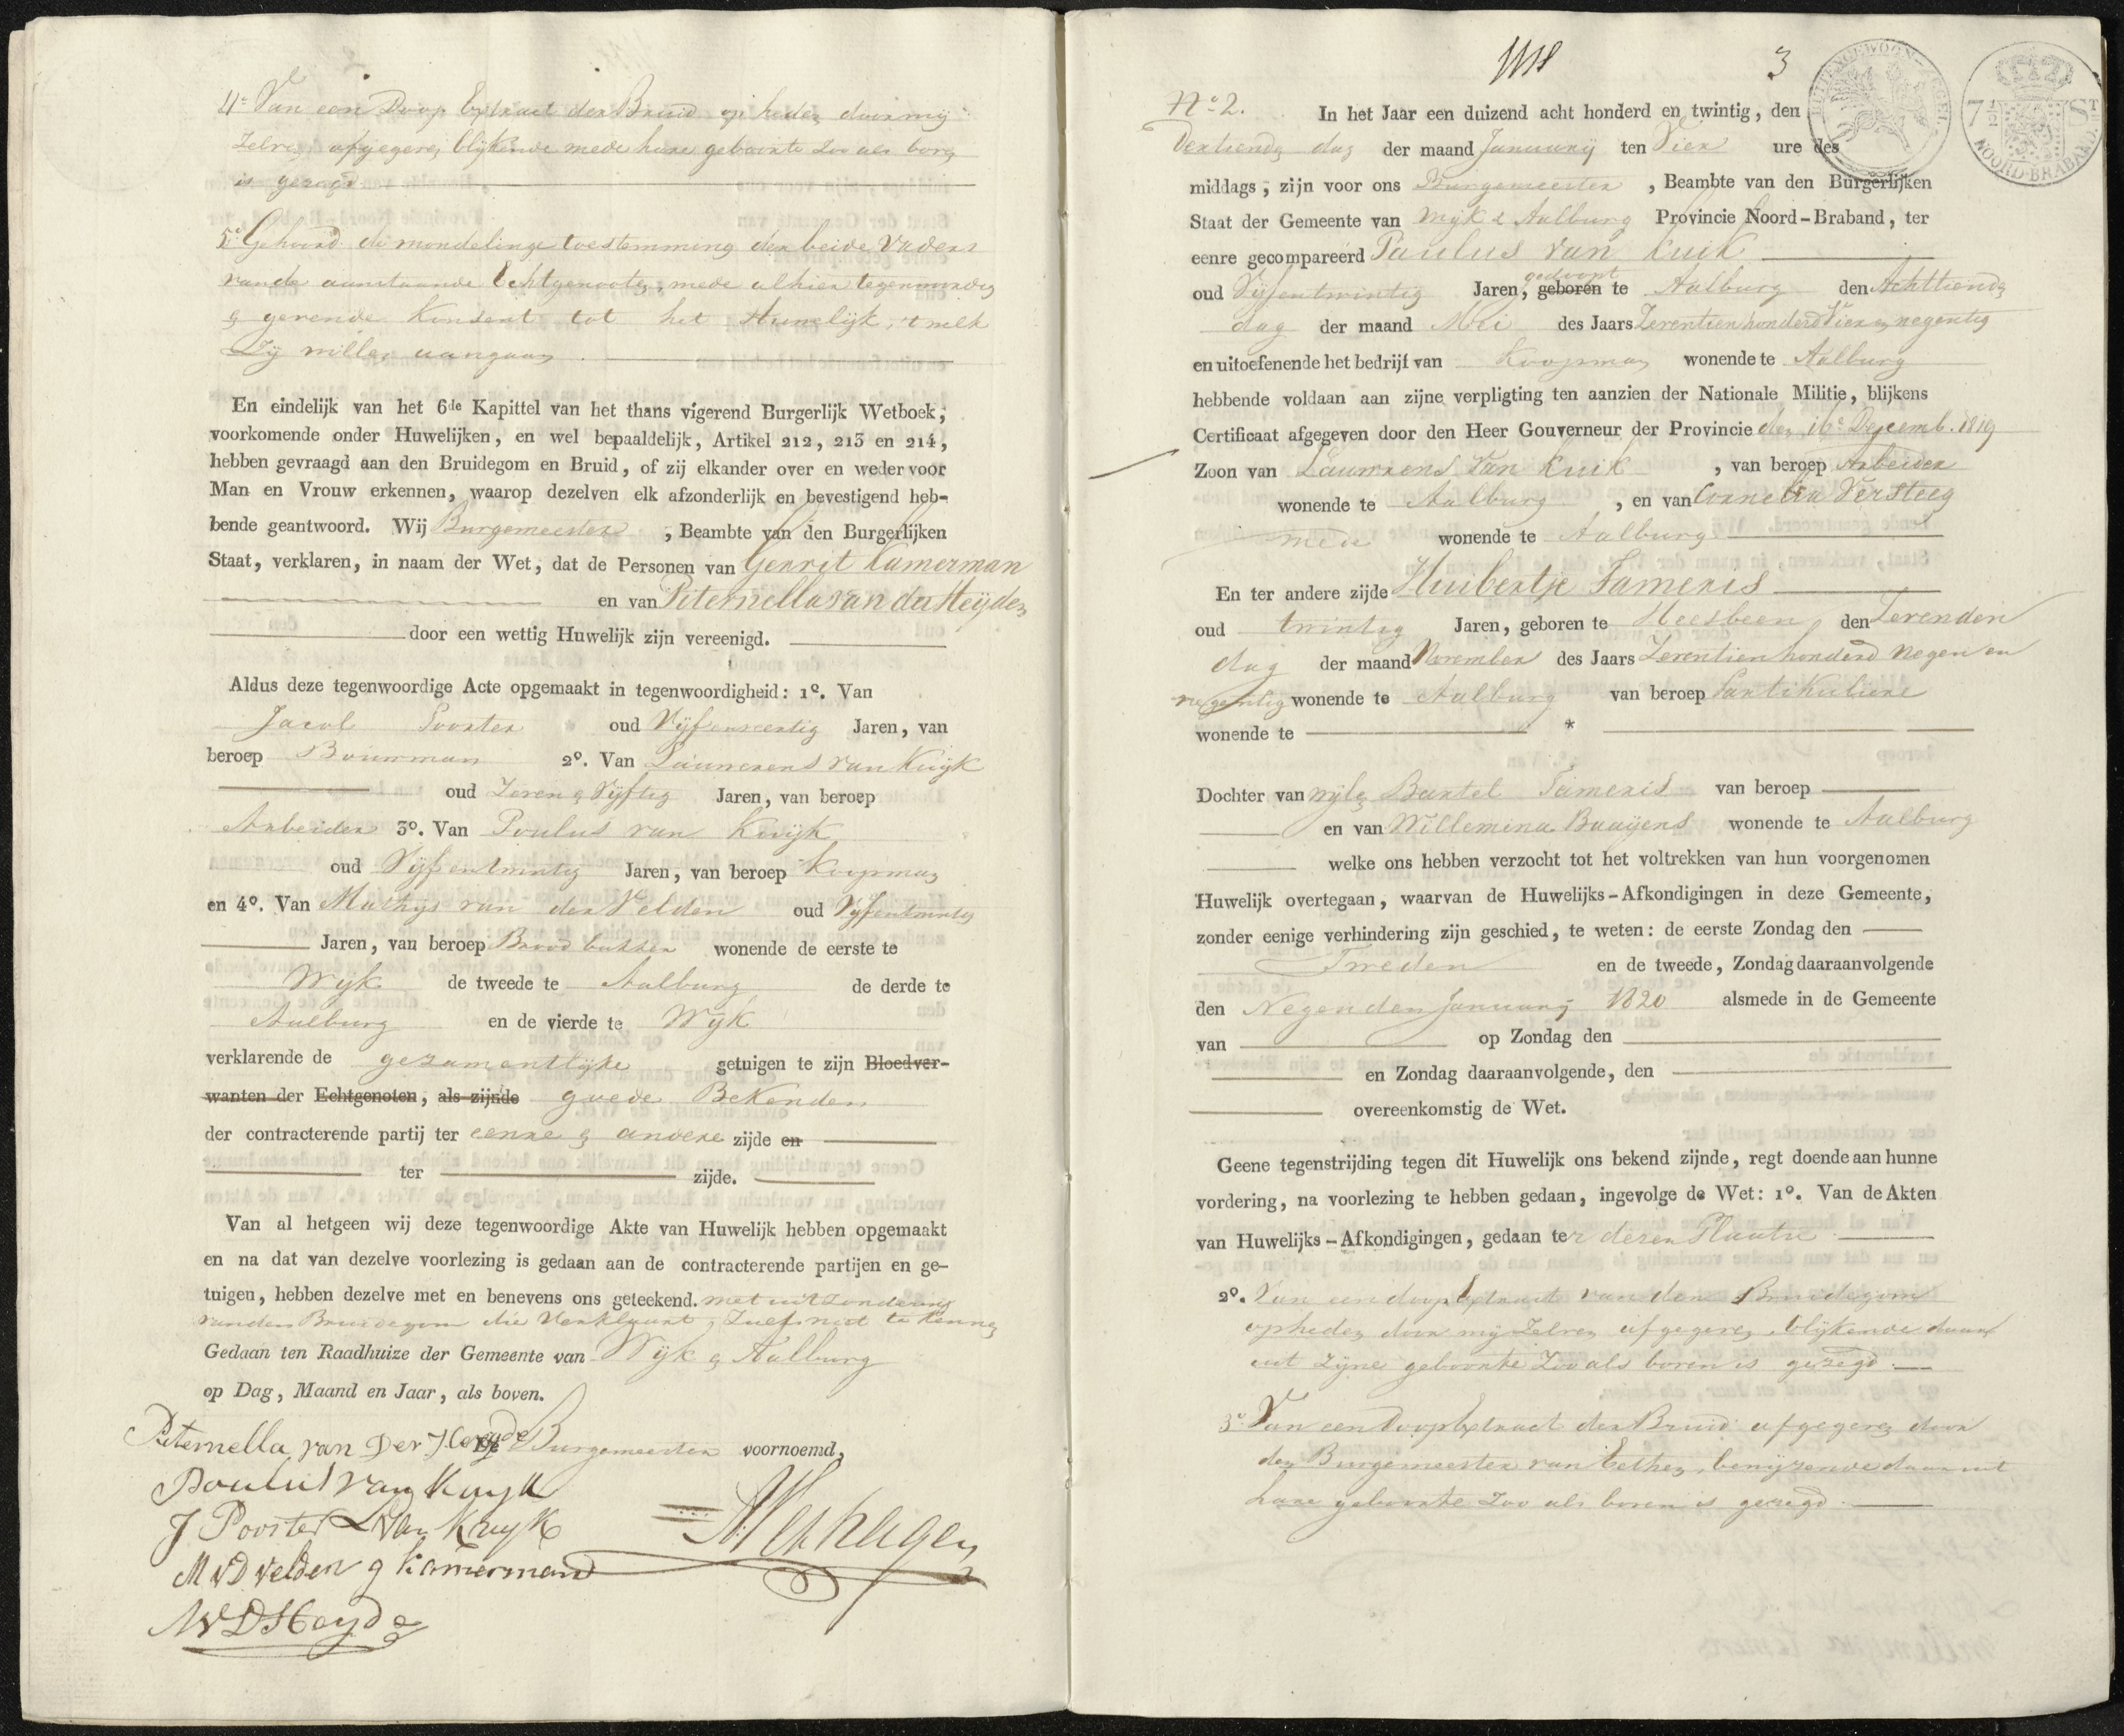 4e Van een Doop Extract der Bruid op heden door mij
zelven afgegeven blijkende mede hare geboorte zoo als boven
is gezegd
5e Gehoord de mondelinge toestemming der beide Vaders
van de aanstaande Echtgenooten, mede alhier tegenwoordig
& gevende Konsent tot het Huwelijk, 't welk
Zij willen aangaan
En eindelijk van het 6de Kapittel van het thans vigerend Burgerlijk Wetboek,
voorkomende onder Huwelijken, en wel bepaaldelijk, Artikel 212, 213 en 214,
hebben gevraagd aan den Bruidegom en Bruid, of zij elkander over en weder voor
Man en Vrouw erkennen, waarop dezelven elk afzonderlijk en bevestigend heb-
bende geantwoord. Wij Burgemeester, Beambte van den Burgerlijken
Staat, verklaren, in naam der Wet, dat de Personen van Gerrit Kamerman
en van Peternella van der Heyden
door een wettig Huwelijk zijn vereenigd.
Aldus deze tegenwoordige Acte opgemaakt in tegenwoordigheid: 1o. Van
Jacob Poorter oud Vijfenveertig Jaren, van
beroep Bouwman 2o. Van Lauwrens van Kuijk
oud Zeven & Vijftig Jaren, van beroep
Arbeider 3o. Van Poulus van Kuijk
oud Vijfentwintig Jaren, van beroep Koopman
en 4o. Van Mathijs van der Velden oud Vijfentwintig
Jaren, van beroep Broodbakker wonende de eerste te
Wijk de tweede te Aalburg de derde te
Aalburg en de vierde te Wijk
verklarende de gezamentlijke getuigen te zijn Bloedver-
wanten der Echtgenoten, als zijnde goede Bekenden
der contracterende partij ter eenre & andere zijde en
ter zijde.
Van al hetgeen wij deze tegenwoordige Akte van Huwelijk hebben opgemaakt
en na dat van dezelve voorlezing is gedaan aan de contracterende partijen en ge-
tuigen, hebben dezelve met en benevens ons geteekend. met uitzondering
van den Bruidegom die Verklaart, zulks niet te kennen
Gedaan ten Raadhuize der Gemeente van Wijk & Aalburg
op Dag, Maand en Jaar, als boven.
Peternella van Der Heyde De Burgemeester voornoemd,
Poulus van Kuyk
J Poorter L van Kuyk
M V D Velden g kamerman
M V D Heyde
No 2. In het Jaar een duizend acht honderd en twintig, den
Dertiende dag der maand Januarij ten Vier ure des
middags, zijn voor ons Burgemeester, Beambte van den Burgerlijken
Staat der Gemeente van Wijk & Aalburg Provincie Noord-Braband, ter
eenre gecompareerd Paulus van Kuik
gedoopt
oud Vijfentwintig Jaren, geboren te Aalburg den Achttiende
dag der maand Mei des Jaars Zeventienhonderd Vier en negentig
en uitoefenende het bedrijf van Koopman wonende te Aalburg
hebbende voldaan aan zijne verpligting ten aanzien der Nationale Militie, blijkens
Certificaat afgegeven door den Heer Gouverneur der Provincie den 16e Decemb. 1819
Zoon van Lauwrens Van Kuik, van beroep Arbeider
wonende te Aalburg, en van Cornelia Versteeg
mede wonende te Aalburg
En ter andere zijde Huibertje Tameris
oud twintig Jaren, geboren te Heesbeen den Zevenden
dag der maand November des Jaars Zeventienhonderd negen en
negentig wonende te Aalburg van beroep Partikuliere
wonende te *
Dochter van wijle Bartel Tameris van beroep
en van Willemina Baaijens wonende te Aalburg
welke ons hebben verzocht tot het voltrekken van hun voorgenomen
Huwelijk overtegaan, waarvan de Huwelijks-Afkondigingen in deze Gemeente,
zonder eenige verhindering zijn geschied, te weten: de eerste Zondag den
Tweeden en de tweede, Zondag daaraanvolgende
den Negenden Januarij 1820 alsmede in de Gemeente
van op Zondag den
en Zondag daaraanvolgende, den
overeenkomstig de Wet.
Geene tegenstrijding tegen dit Huwelijk ons bekend zijnde, regt doende aan hunne
vordering, na voorlezing te hebben gedaan, ingevolge de Wet: 1o. Van de Akten
van Huwelijks-Afkondigingen, gedaan ter dezen Plaatse
2o. Van een doop Extract van den Bruidegom
op heden door mij Zelven afgegeven, blijkende daar
uit zijne geboorte Zoo als boven is gezegd
3e Van een Doop Extract der Bruid afgegeven door
den Burgemeester van Eethen, bewijzende daar uit
hare geboorte zoo als boven is gezegd
3
7 1/2 ST
NOORD-BRABAND